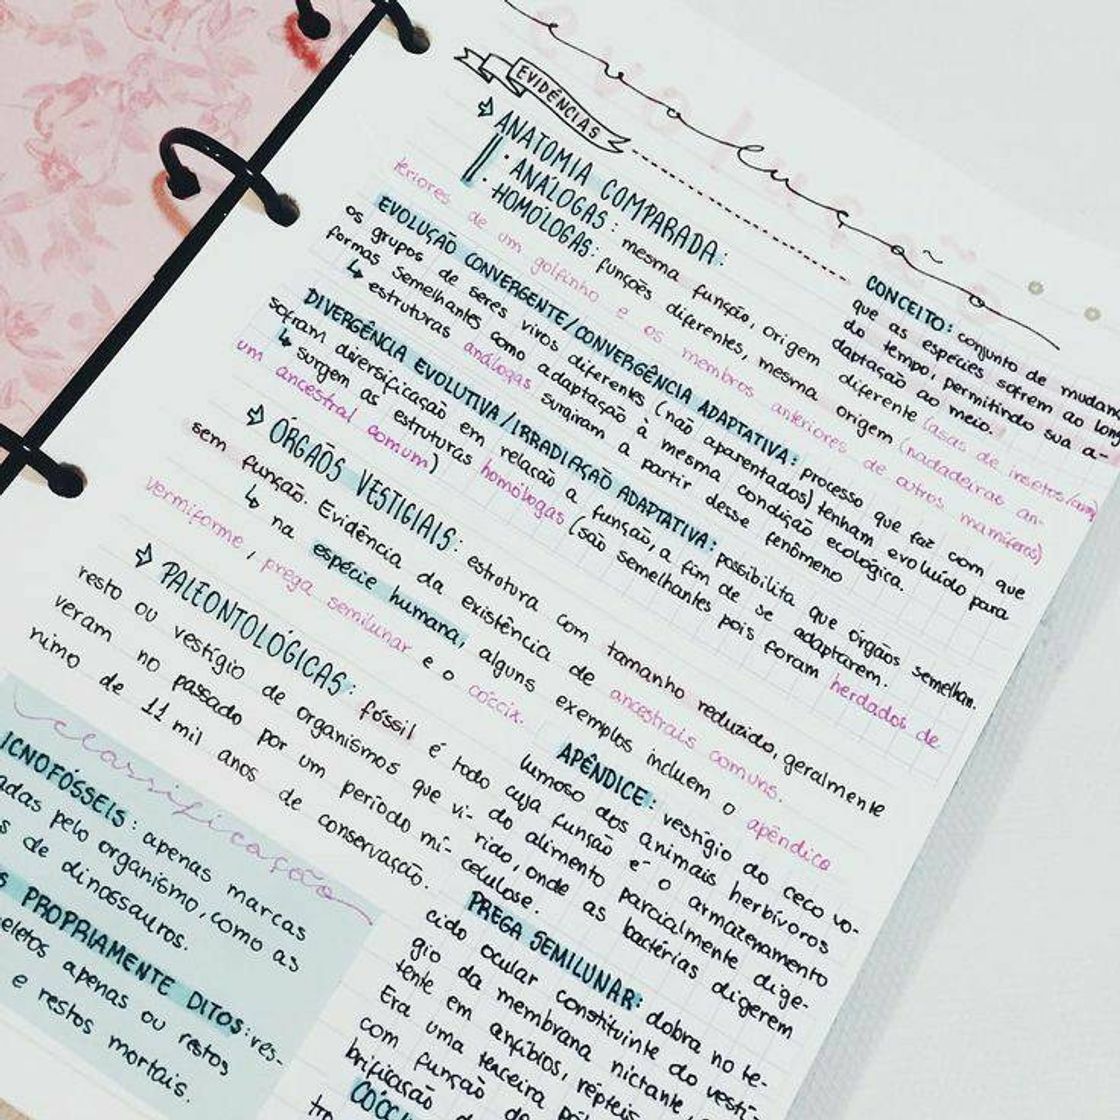 evolução
EVIDÊNCIAS
CONCEITO: conjunto de mudan
que as espécies sofrem ao long
do tempo, permitindo sua a-
daptação ao meio.
ANATOMIA COMPARADA:
· ANÁLOGAS: mesma função, origem diferente (asas de insetos/aves)
· HOMÓLOGAS: funções diferentes, mesma origem (nadadeiras an-
teriores de um golfinho e os membros anteriores de outros mamíferos)
EVOLUÇÃO CONVERGENTE/CONVERGÊNCIA ADAPTATIVA: processo que faz com que
os grupos de seres vivos diferentes (não aparentados) tenham evoluído para
formas semelhantes como adaptação à mesma condição ecológica.
↳ estruturas análogas surgiram a partir desse fenômeno
DIVERGÊNCIA EVOLUTIVA/IRRADIAÇÃO ADAPTATIVA: possibilita que órgãos semelhan.
sofram diversificação em relação a função, a fim de se adaptarem.
↳ surgem as estruturas homólogas (são semelhantes pois foram herdados de
um ancestral comum)
ÓRGÃOS VESTIGIAIS: estrutura com tamanho reduzido, geralmente
sem função. Evidência da existência de ancestrais comuns.
↳ na espécie humana, alguns exemplos incluem o apêndice
vermiforme, prega semilunar e o cóccix.
PALEONTOLÓGICAS: fóssil é todo
resto ou vestígio de organismos que vi-
veram no passado por um período mí-
nimo de 11 mil anos de conservação.
APÊNDICE: vestígio do ceco vo-
lumoso dos animais herbívoros
cuja função é o armazenamento
do alimento parcialmente dige-
rido, onde as bactérias digerem
celulose.
PREGA SEMILUNAR: dobra no te-
cido ocular constituinte do vestí-
gio da membrana nictante,
tente em anfíbios, répteis
Era uma terceira
com função de
brificação
CÓCCI
classificação
ICNOFÓSSEIS: apenas marcas
adas pelo organismo, como as
s de dinossauros.
S PROPRIAMENTE DITOS: ves-
eletos apenas ou restos
e restos mortais.